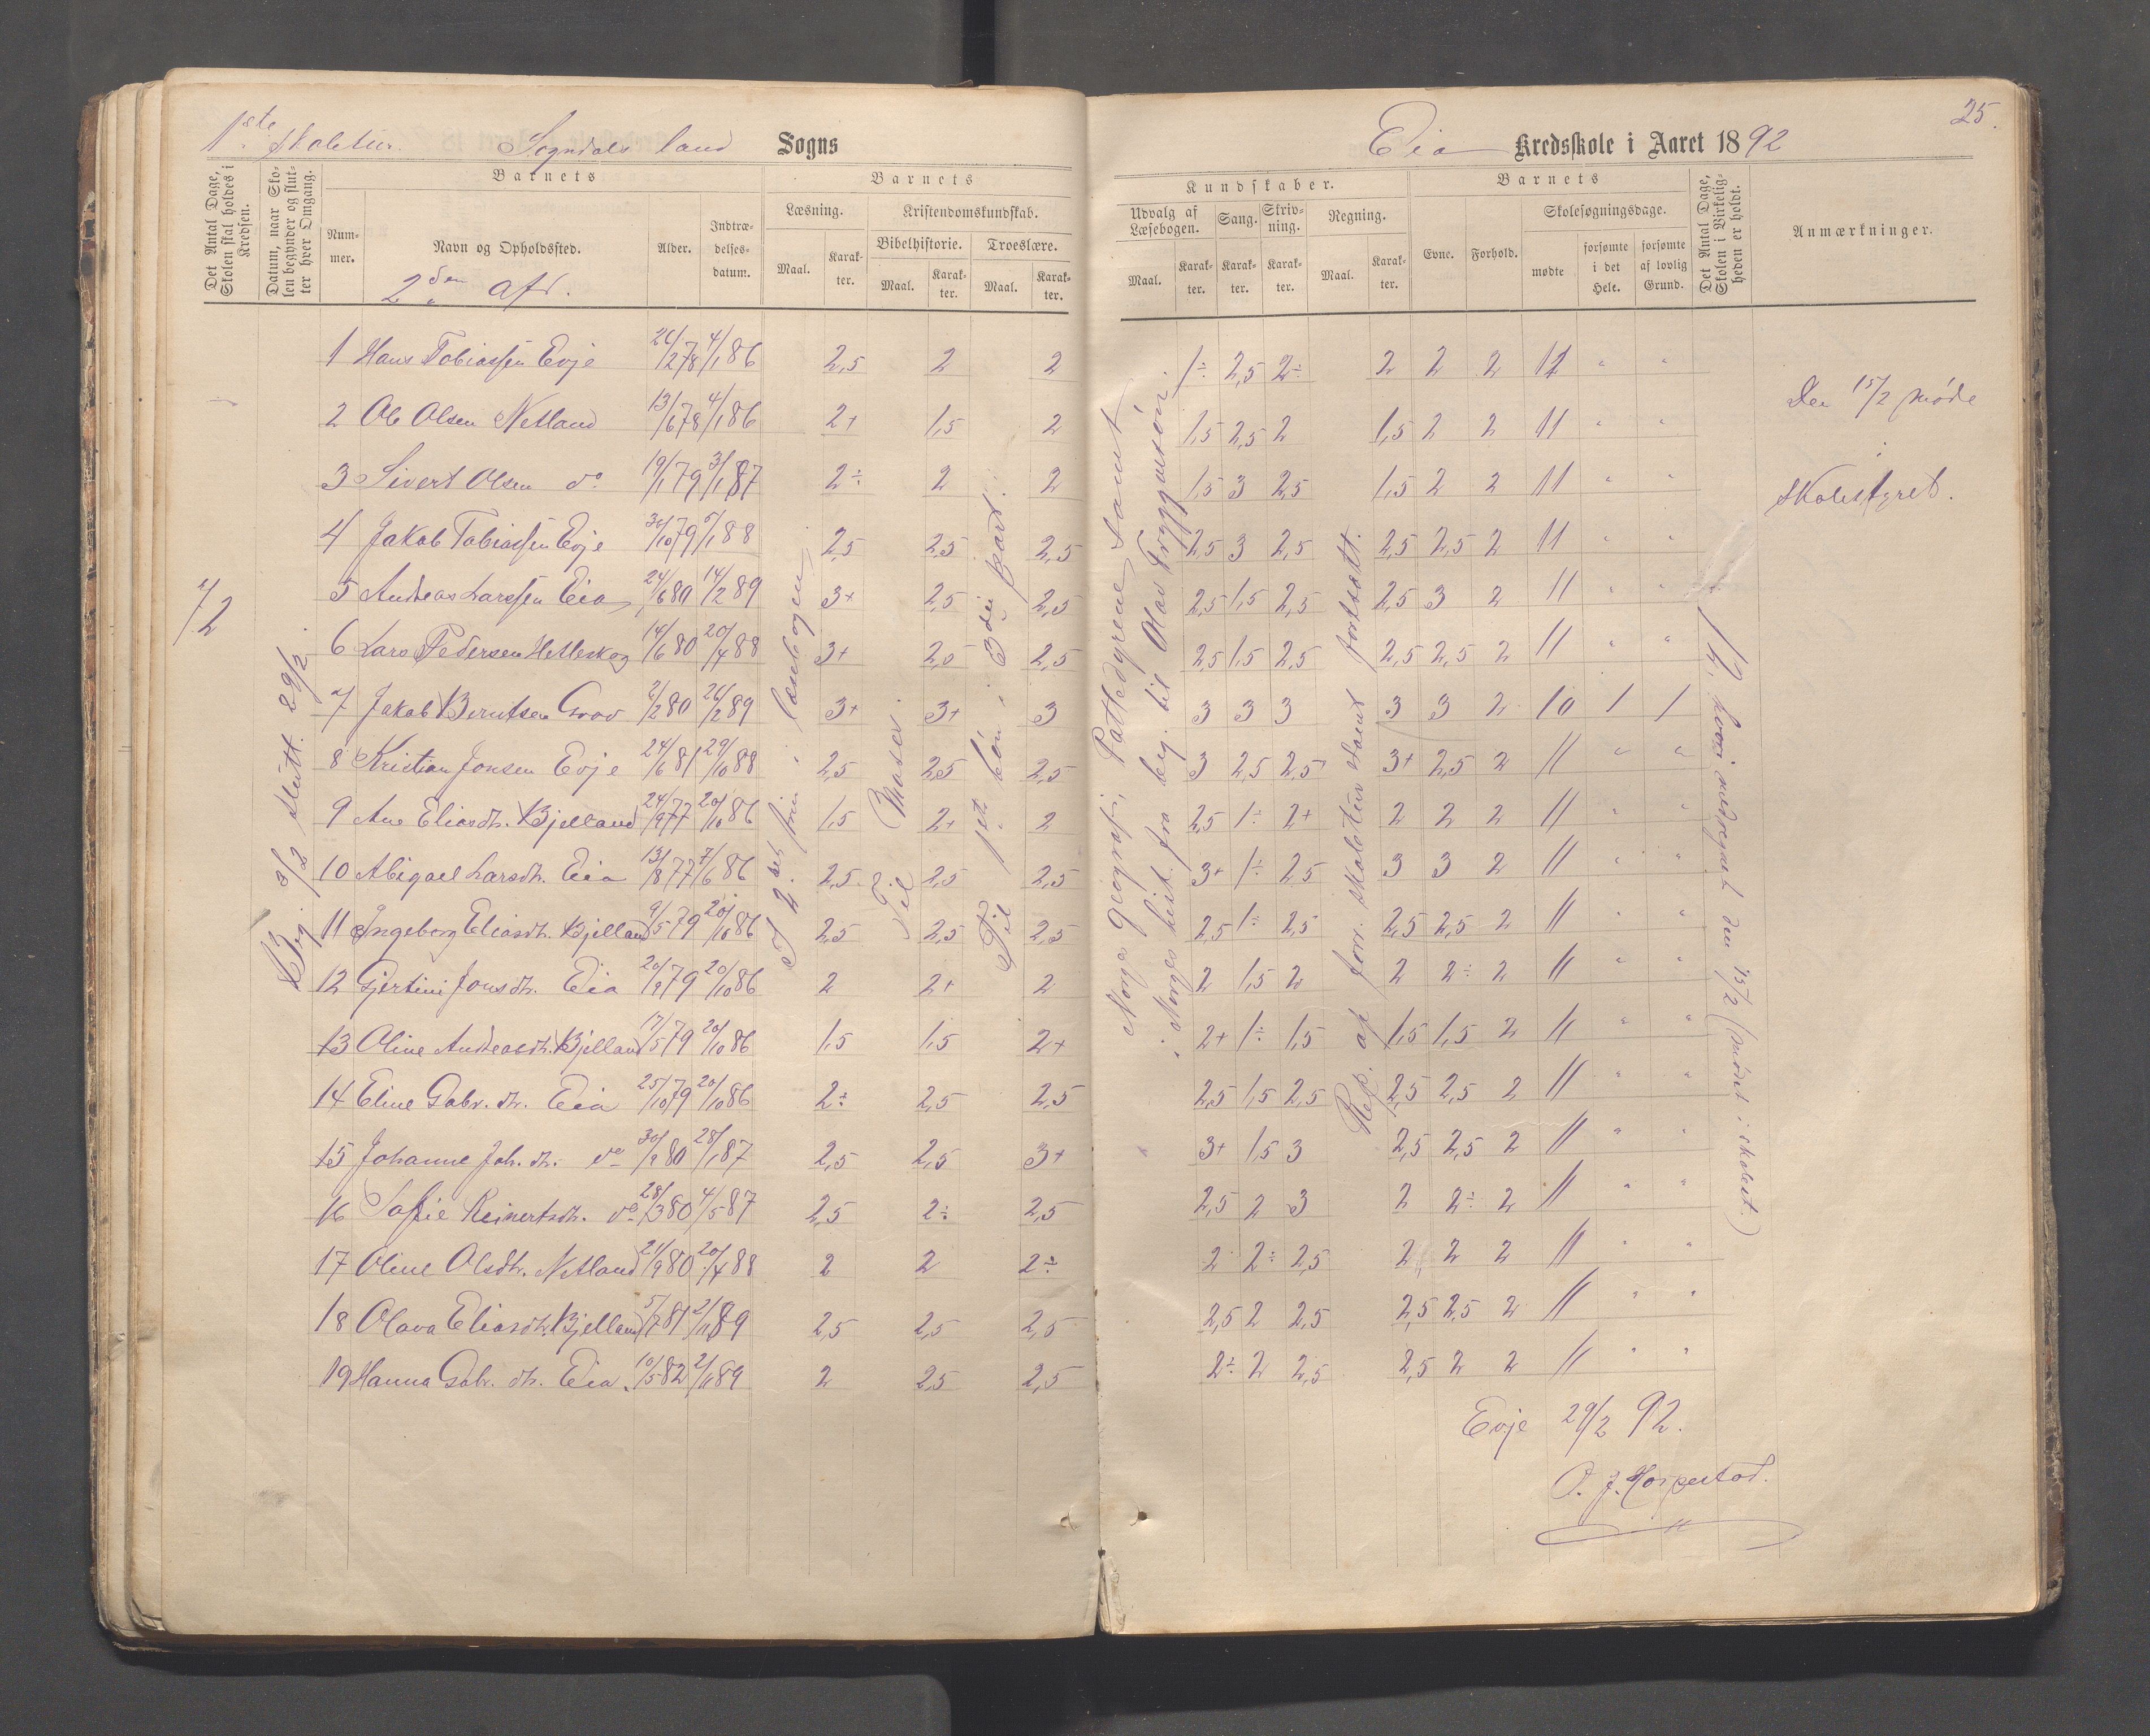 1ste Skoletur. Sogndals land Sogns
Eia Kredsskole i Aaret 1892
25.
Det Antal Dage, Skolen skal holdes i Kredsen.
Datum, naar Skolen begynder og slutter hver Omgang.
Barnets
Nummer.
Navn og Opholdssted.
2den afd.
Alder.
Indtrædelsesdatum.
Barnets
Læsning.
Maal.
Karakter.
Kristendomskundskab.
Bibelhistorie.
Maal.
Karakter.
Troeslære.
Maal.
Karakter.
Kundskaber.
Udvalg af Læsebogen.
Maal.
Karakter.
Sang.
Karakter.
Skrivning.
Karakter.
Regning.
Maal.
Karakter.
Barnets
Evne.
Forhold.
Skolesøgningsdage.
mødte
forsømte i det Hele.
forsømte af lovlig Grund.
Det Antal Dage, Skolen i Virkeligheden er holdt.
Anmærkninger.
1 Hans Tobiassen Evje 26/2 78 4/1 86 2,5 2 2 1÷ 2,5 2÷ 2 2 2 11 " "
2 Ole Olsen Netland 13/6 78 4/1 86 2+ 1,5 2 1,5 2,5 2 1,5 2 2 11 " "
3 Sivert Olsen do 19/1 79 3/1 87 2÷ 2 2 1,5 3 2,5 1,5 2 2 11 " "
4 Jakob Tobiassen Evje 30/10 79 5/1 88 2,5 2,5 2,5 2,5 3 2,5 2,5 2,5 2 11 " "
5 Andreas Larssen Eia 24/6 80 14/2 89 3+ 2,5 2,5 2,5 1,5 2,5 2,5 3 2 11 " "
6 Lars Pedersen Hetleskog 14/6 80 20/4 88 3+ 2,5 2,5 2,5 1,5 2,5 2,5 2,5 2 11 " "
7 Jakob Berntsen Grov 2/2 80 26/2 89 3+ 3+ 3 3 3 3 3 3 2 10 1 1
8 Kristian Jonsen Evje 24/6 81 29/10 88 2,5 2,5 2,5 3 2,5 2,5 3+ 2,5 2 11 " "
9 Ane Eliasdt. Bjelland 24/9 77 20/10 86 1,5 2+ 2 2,5 1÷ 2+ 2 2 2 11 " "
10 Abigael Larsdt. Eia 13/8 77 7/6 86 2,5 2,5 2,5 3+ 1÷ 2,5 3 3 2 11 " "
11 Ingeborg Eliasdt. Bjelland 9/5 79 20/10 86 2,5 2,5 2,5 2,5 1÷ 2,5 2,5 2,5 2 11 " "
12 Gjertine Jonsdt. Eia 20/9 79 20/10 86 2 2+ 2 2 1,5 2 2 2÷ 2 11 " "
13 Oline Andreasdt. Bjelland 17/5 79 20/10 86 1,5 1,5 2+ 2+ 1÷ 1,5 1,5 1,5 2 11 " "
14 Eline Gabr. dt. Eia 25/10 79 20/10 86 2÷ 2,5 2,5 2,5 1,5 2,5 2,5 2,5 2 11 " "
15 Johanne Joh. dt. do 30/9 80 28/1 87 2,5 2,5 3+ 3+ 1,5 3 2,5 2,5 2 11 " "
16 Sofie Reinertsdt. do 28/3 80 4/5 87 2,5 2÷ 2,5 2,5 2 3 2 2÷ 2 11 " "
17 Oline Olsdt. Netland 21/9 80 20/4 88 2 2 2÷ 2 2÷ 2,5 2 2 2 11 " "
18 Olava Eliasdt. Bjelland 5/7 81 2/1 89 2,5 2,5 2,5 2,5 2 2,5 2,5 2,5 2 11 " "
19 Hanna Gabr. dt. Eia 10/5 82 2/1 89 2 2,5 2,5 2÷ 2 2,5 2,5 2 2 11 " "
Beg. 3/2 slutt. 29/2.
i læsebogen
Til Moses.
Til 1ste bøn i 3die part.
Norges geografi, Pattedyrene samt
i Norges hist. fra beg. til Olav Tryggvesøn.
Rep. af forr. skoletur samt fortsatt.
12, hvori medregnet den 15/2 (mødet i skolest.)
Den 15/2 møde
i
Skolestyret.
Evje 29/2 92.
O. J. Horpestad.